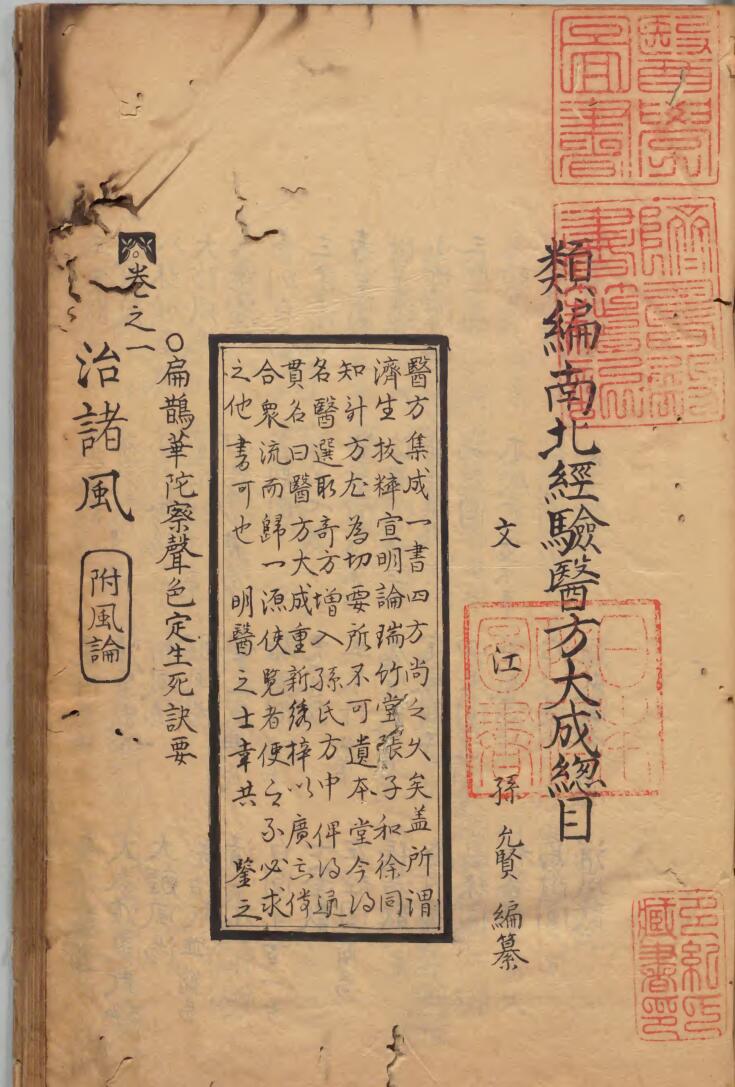 類編南北經驗醫方大成總目
文江 孫允賢 編纂
醫方集成一書四方尚之久矣盖所謂
濟生抜粹宣明論瑞竹堂張子和徐同
知計方尤為切要所不可遺本堂今得
名醫選取奇方增入孫氏方中俾得通
貫名曰醫方大成重新綉梓以廣其傳
合衆流而歸一源使覧者便之不必求
之他書可也 明醫之士幸共 鑒之
○扁鵲華陀察聲色定生死訣要
卷之一
治諸風 附風論
醫學圖書
日本政府圖書